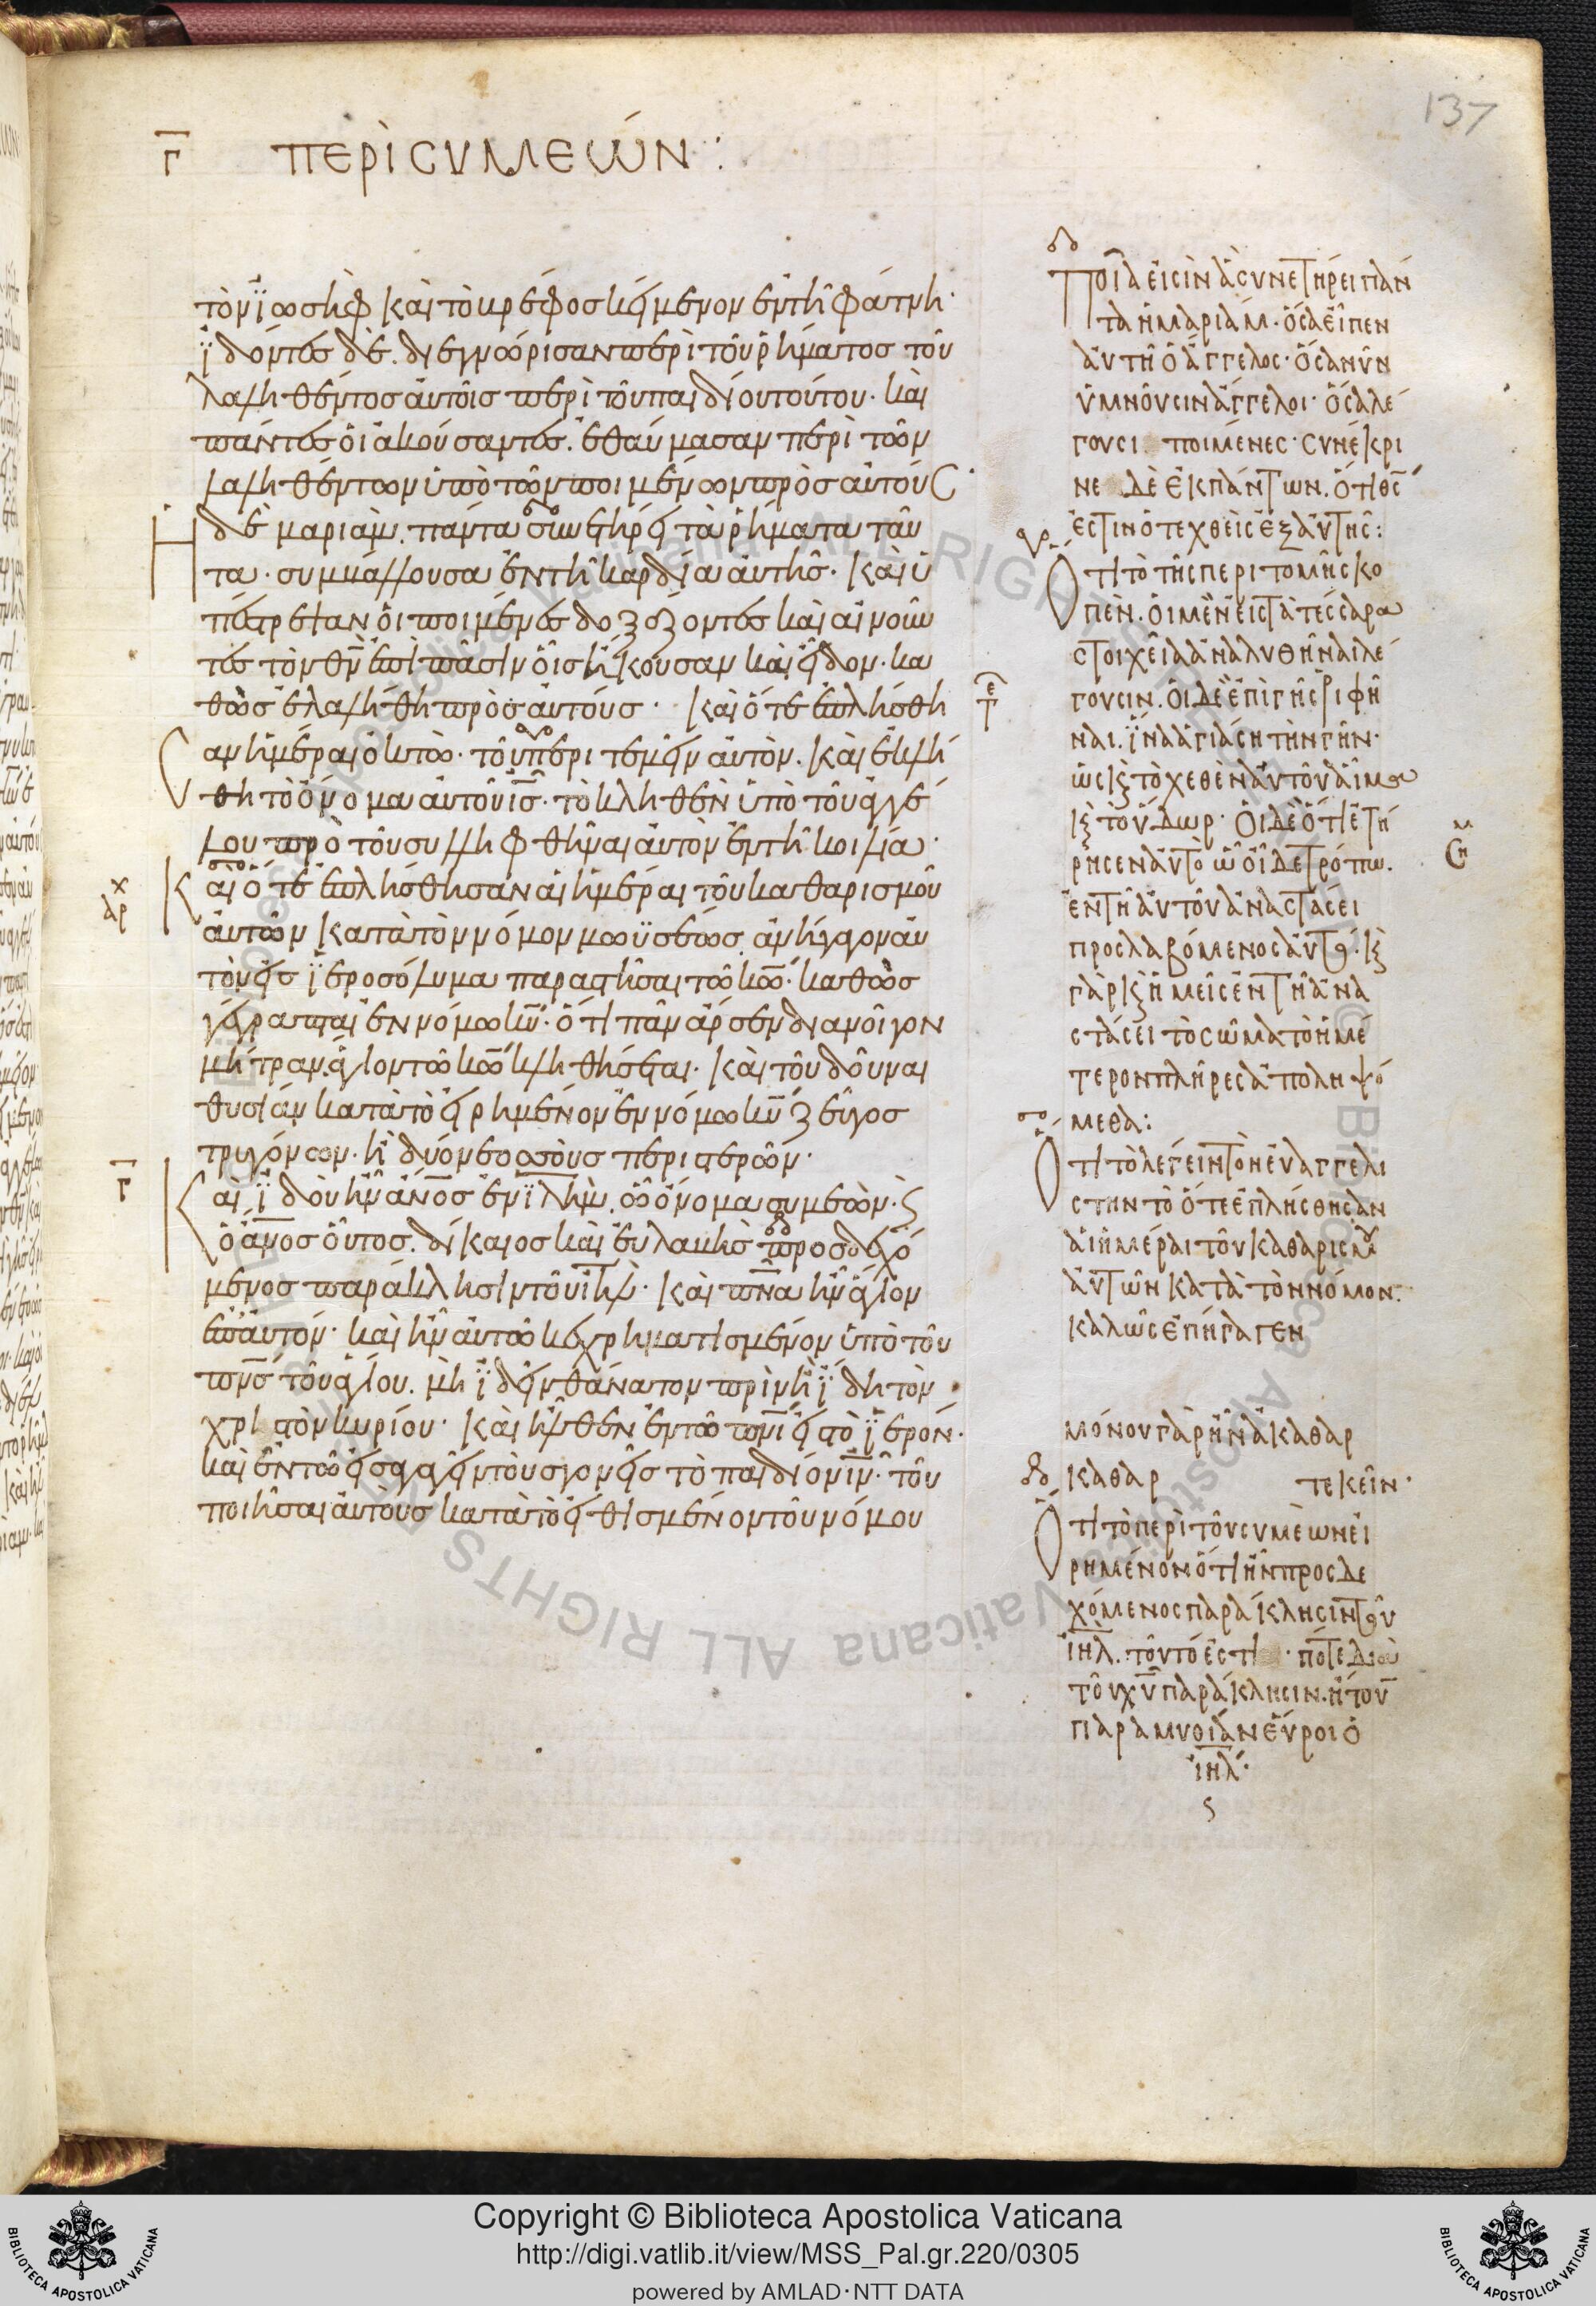 137
Γ̅ ΠΕΡὶ CΥΜΕώΝ :
τὸν ϊωσὴφ καὶ τὸ βρέφος κείμενον ἐν τῆ φάτνη·
ϊδόντες δὲ. διεγνώρισαν περὶ τοῦ ῥήματος τοῦ
λαληθέντος αὐτοῖς περὶ τοῦ παιδίου τούτου· καὶ
πάντες οἱ ἀκούσαντες. ἐθαύμασαν περὶ τῶν
λαληθέντων ὑπὸ τῶν ποιμένων πρὸς αὐτούς·
Η δὲ μαριὰμ. πάντα συνετήρει τὰ ῥήματα ταῦ
τα· συμβάλλουσα ἐν τῆ καρδία αὐτῆς· καὶ ὑ
πέστρεψαν οἱ ποιμένες δοξάζοντες καὶ αἰνοῦν
τες τὸν θν̅ ἐπὶ πᾶσιν οἷς ἤκουσαν καὶ εἶδον· κα
θὼς ἐλαλήθη πρὸς αὐτούς· καὶ ὅτε ἐπλήσθη
σαν ἡμέραι ὀκτὼ· τοῦ περιτεμεῖν αὐτόν· καὶ ἐκλή
θη τὸ ὄνομα αὐτοῦ ις̅· τὸ κληθὲν ὑπὸ τοῦ ἀγγέ
λου πρὸ τοῦ συλληφθῆναι αὐτὸν ἐν τῆ κοιλία·
Καὶ ὅτε ἐπλήσθησαν αἱ ἡμέραι τοῦ καθαρισμοῦ
αὐτῶν κατὰ τὸν νόμον μωϋσέως ἀνήγαγον αὐ
τὸν εἰς ϊεροσόλυμα παραστῆσαι τῶ κω̅· καθὼς
γέγραπται ἐν νόμω κυ̅· ὅτι πᾶν ἄρσεν διανοῖγον
μήτραν. ἅγιον τῶ κω̅ κληθήσεται· καὶ τοῦ δοῦναι
θυσίαν κατὰ τὸ εἰρημένον ἐν νόμω κυ̅ ζεῦγος
τρυγόνων· ἢ δύο νεοσσοὺς περιστερῶν·
Καὶ ϊδοὺ ἦν ἄνος̅ ἐν ϊλημ̅. ὧ ὄνομα συμεών·
ὁ ἄνος̅ οὗτος. δίκαιος καὶ εὐλαβὴς προσδεχό
μενος παράκλησιν τοῦ ιηλ̅· καὶ πνα̅ ἦν ἅγιον
ἐπ αὐτόν· καὶ ἦν αὐτῶ κεχρηματισμένον ὑπὸ τοῦ
πνς̅ τοῦ ἁγίου. μὴ ϊδεῖν θάνατον πρὶν ἢ ϊδη τὸν
χριστὸν κυρίου· καὶ ἦλθεν ἐν τῶ πνι̅ εἰς τὸ ϊερόν·
καὶ ἐν τῶ εἰσαγαγεῖν τοὺς γονεῖς τὸ παιδίον ιν̅· τοῦ
ποιῆσαι αὐτοὺς κατὰ τὸ εἰθισμένον τοῦ νόμου
ἀρχ
Γ̅
Ποῖα εἰσὶν ἃ συνετήρει πάν
τα ἡ μαριάμ· ὅσα εἶπεν
αὐτῆ ὁ ἄγγελος· ὅσα νῦν
ὑμνοῦσιν ἄγγελοι· ὅσα λέ
γουσι ποιμένες· συνέκρι
νε δὲ ἐκ πάντων. ὅτι θς̅
ἐστιν ὁ τεχθεὶς ἐξ αὐτῆς:
Οτι τὸ τῆς περιτομῆς κο
πὲν. οἱ μὲν εἰς τὰ τέσσαρα
στοιχεῖα ἀναλυθῆναι λέ
γουσιν. οἱ δὲ ἐπὶ γῆς ριφῆ
ναι. ϊνα ἁγιάση τὴν γῆν·
ὡς κ τὸ χεθὲν αὐτοῦ αἷμα
κ τὸ ὕδωρ· Οἱ δὲ ὅτι ἐτή
ρησεν αὐτὸ ὧ οἶδε τρόπω.
ἐν τῆ αὐτοῦ ἀναστάσει
προσλαβόμενος αὐτό· κ
γὰρ κ ἡμεῖς ἐν τῆ ἀνα
στάσει τὸ σῶμα τὸ ἡμέ
τερον πλῆρες ἀποληψό
μεθα:
Οτι τὸ λέγειν τὸν εὐαγγελι
στην τὸ ὅτε ἐπλήσθησαν
αἱ ἡμέραι τοῦ καθαρισμοῦ
αὐτῶν κατὰ τὸν νόμον·
καλῶς ἐπήγαγεν
μόνου γὰρ ἦν ἀκαθαρ
καθαρ τεκεῖν·
Οτι τὸ περὶ τοῦ συμεὼν εἰ
ρημένον ὅτι ἦν προσδε
χόμενος παράκλησιν τοῦ
ιηλ̅. τοῦτό ἐστι · πότε διὰ
τοῦ χυ̅ παράκλησιν. ἤτουν
παραμυθίαν εὕροι ὁ
ιηλ̅·
Copyright © Biblioteca Apostolica Vaticana
http://digi.vatlib.it/view/MSS_Pal.gr.220/0305
powered by AMLAD·NTT DATA
BIBLIOTECA APOSTOLICA VATICANA
BIBLIOTECA APOSTOLICA VATICANA